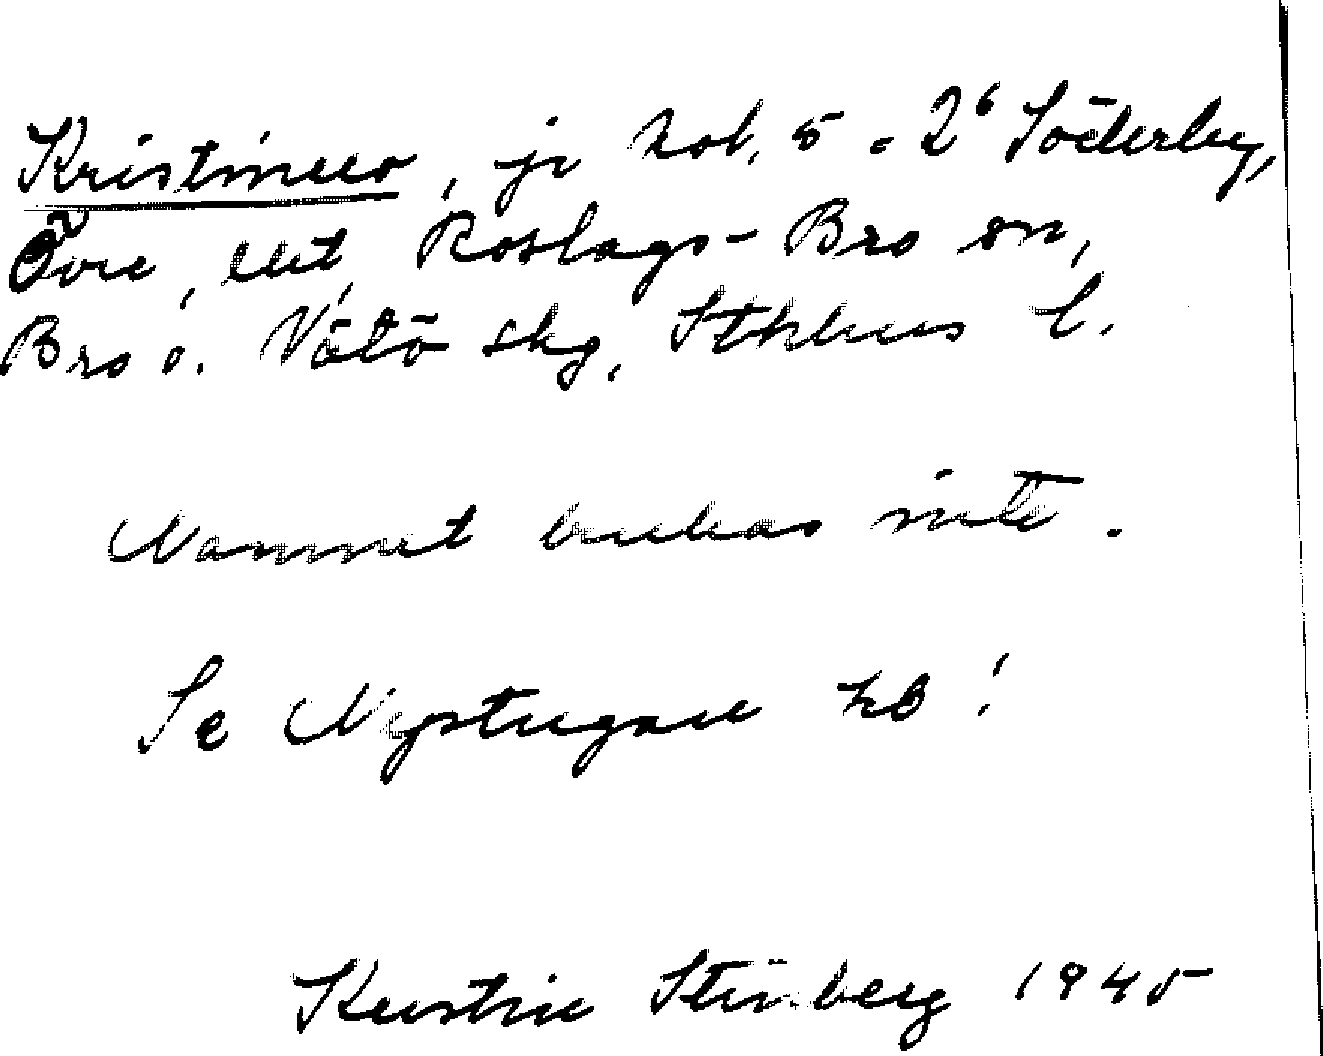 Kristineo, jr kol. 5 - 2⁶ Söderby,
Övre, ut, Roslags-Bro sn,
Bro o. Vätö skg, Sthlms l.
Namnet brukas inte.
Se Nystugan kB!
Kerstin Stenberg 1945